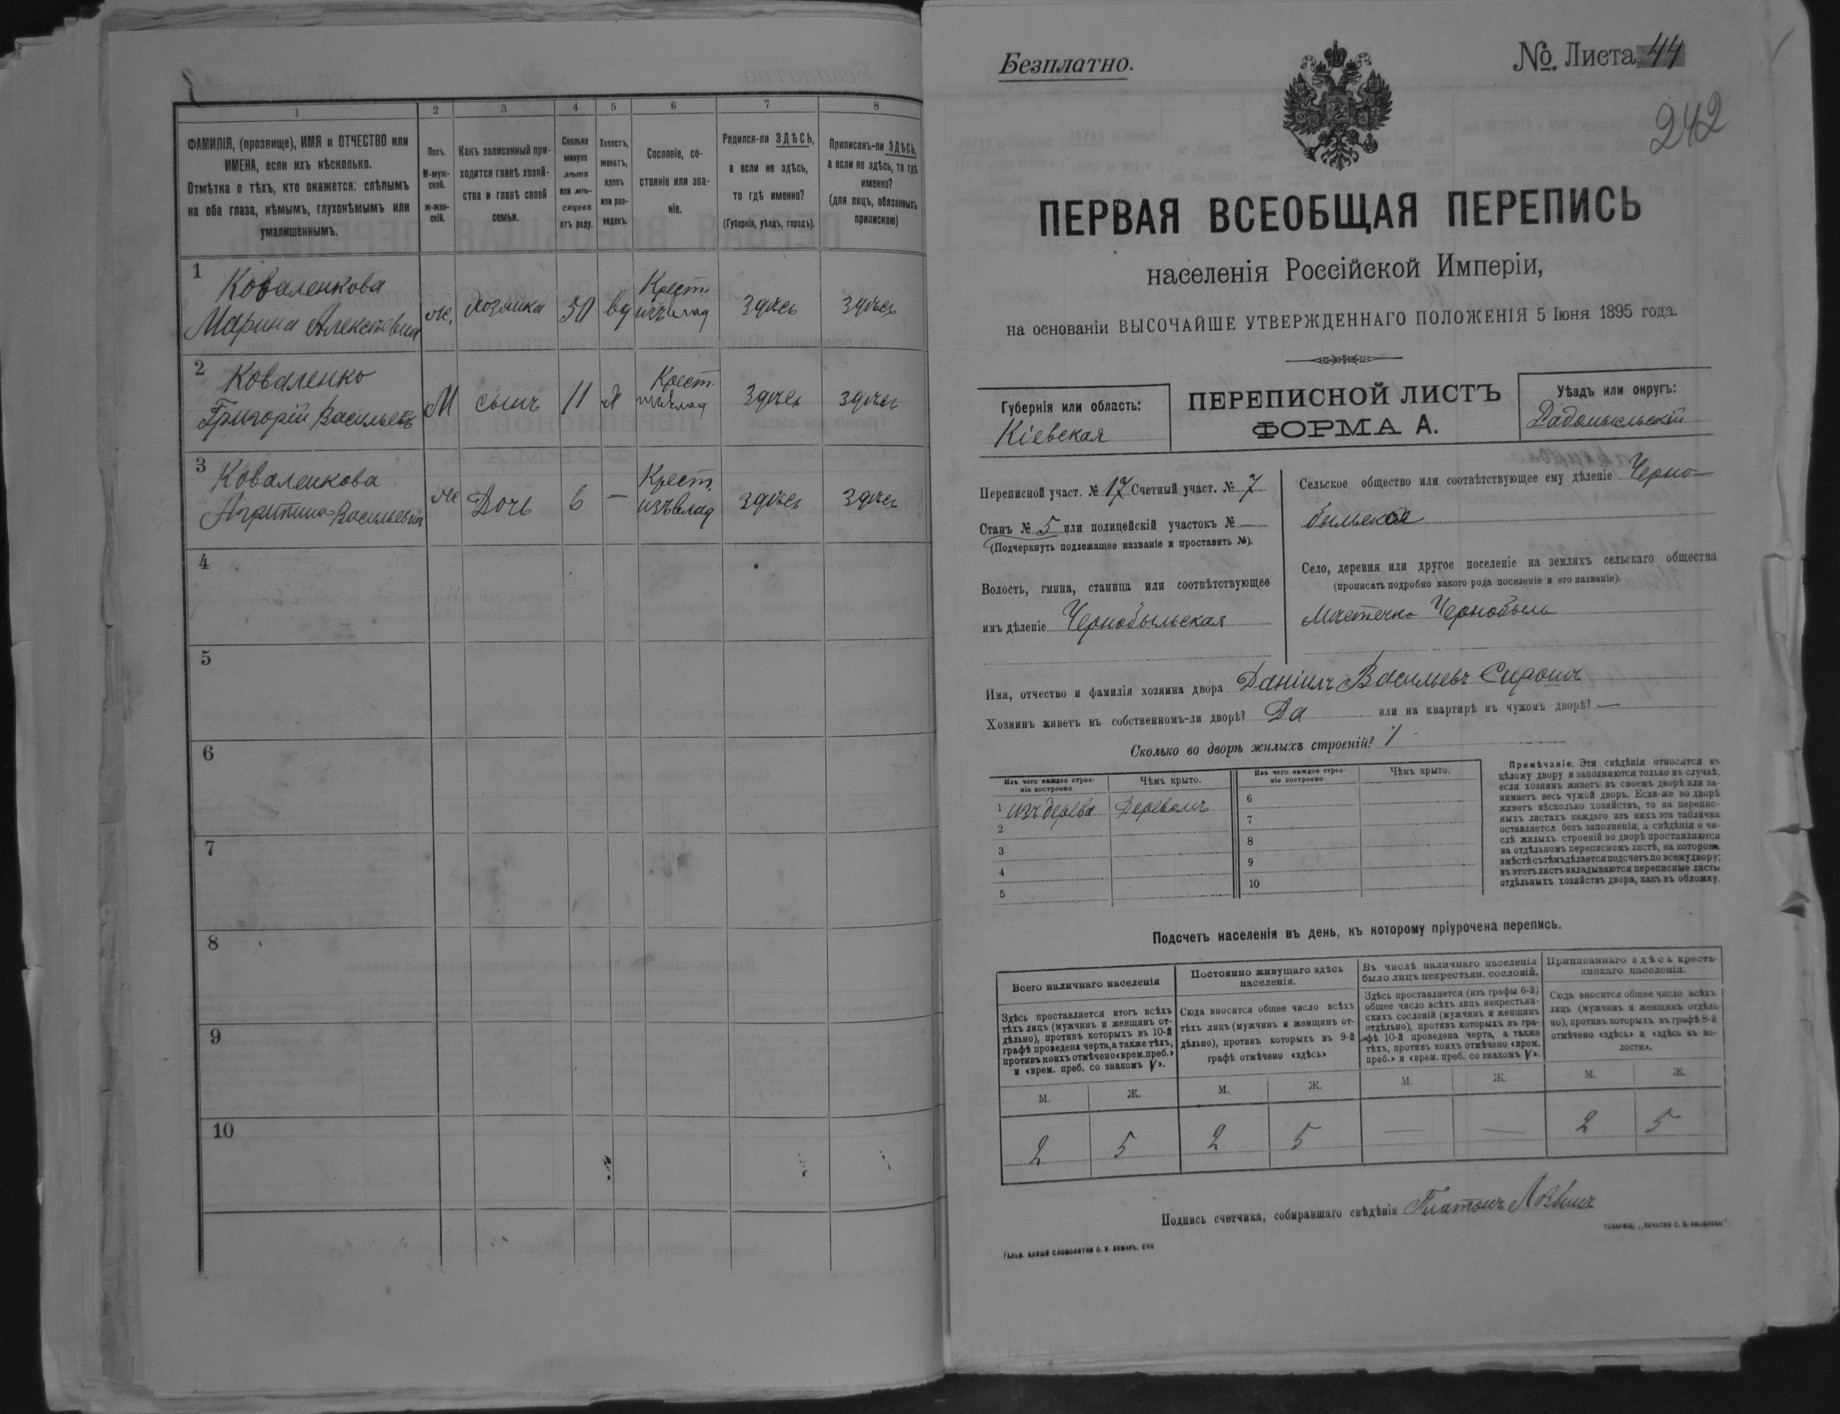 1
2
3
4
5
6
7
8
ФАМИЛІЯ, (прозвище), ИМЯ и ОТЧЕСТВО или
ИМЕНА, если ихъ нѣсколько.
Отмѣтка о тѣхъ, кто окажется: слѣпымъ
на оба глаза, нѣмымъ, глухонѣмымъ или
умалишеннымъ.
Полъ.
М-муж-
ской.
Ж-жен-
скій.
Какъ записанный при-
ходится главѣ хозяй-
ства и главѣ своей
семьи.
Сколько
минуло
лѣтъ
или мѣ-
сяцевъ
отъ роду.
Холостъ,
женатъ,
вдовъ
или раз-
веденъ.
Сословіе, со-
стояніе или зва-
ніе.
Родился-ли ЗДѢСЬ,
а если не здѣсь,
то гдѣ именно?
(Губернія, уѣздъ, городъ).
Приписанъ-ли ЗДѢСЬ,
а если не здѣсь, то гдѣ
именно?
(для лицъ, обязанныхъ
припискою)
1 Коваленкова
Марина ж. хозяйка 50 вд Крест. изъ влад здѣсь здѣсь
2 Коваленко
Григорій Васильевъ М сынъ 11 х Крест. здѣсь здѣсь
3 Коваленкова
Васильевна ж Дочь 6 — Крест. изъ влад здѣсь здѣсь
4
5
6
7
8
9
10
Безплатно.
№ Листа 44
242
ПЕРВАЯ ВСЕОБЩАЯ ПЕРЕПИСЬ
населенія Россійской Имперіи,
на основаніи ВЫСОЧАЙШЕ УТВЕРЖДЕННАГО ПОЛОЖЕНІЯ 5 Іюня 1895 года.
Губернія или область:
Кіевская
ПЕРЕПИСНОЙ ЛИСТЪ
ФОРМА А.
Уѣздъ или округъ:
Радомысльскій
Переписной участ. № 17 Счетный участ. № 7
Станъ № 5 или полицейскій участокъ №
(Подчеркнуть подлежащее названіе и проставить №).
Волость, гмина, станица или соотвѣтствующее
имъ дѣленіе Чернобыльская
Сельское общество или соотвѣтствующее ему дѣленіе Черно-
быльское
Село, деревня или другое поселеніе на земляхъ сельскаго общества
(прописать подробно какого рода поселеніе и его названіе).
мѣстечко Чернобыль
Имя, отчество и фамилія хозяина двора Даніилъ Васильевъ
Хозяинъ живетъ въ собственномъ-ли дворѣ? Да или на квартирѣ въ чужомъ дворѣ? —
Сколько во дворѣ жилыхъ строеній? 1
Изъ чего каждое строе-
ніе построено
Чѣмъ крыто.
Изъ чего каждое строе-
ніе построено
Чѣмъ крыто.
1 изъ дерева Деревомъ
2
3
4
5
6
7
8
9
10
Примѣчаніе. Эти свѣдѣнія относятся къ
цѣлому двору и заполняются только въ случаѣ,
если хозяинъ живетъ въ своемъ дворѣ или за-
нимаетъ весь чужой дворъ. Если-же во дворѣ
живетъ нѣсколько хозяйствъ, то на перепис-
ныхъ листахъ каждаго изъ нихъ эта табличка
оставляется безъ заполненія, а свѣдѣнія о чи-
слѣ жилыхъ строеній во дворѣ проставляются
на отдѣльномъ переписномъ листѣ, на которомъ
вмѣстѣ съ тѣмъ дѣлается подсчетъ по всему двору;
въ этотъ листъ вкладываются переписные листы
отдѣльныхъ хозяйствъ двора, какъ въ обложку.
Подсчетъ населенія въ день, къ которому пріурочена перепись.
Всего наличнаго населенія
Постоянно живущаго здѣсь
населенія.
Въ числѣ наличнаго населенія
было лицъ некрестьян. сословій.
Приписаннаго здѣсь кресть-
янскаго населенія.
Здѣсь проставляется итогъ всѣхъ
тѣхъ лицъ (мужчинъ и женщинъ от-
дѣльно), противъ которыхъ въ 10-й
графѣ проведена черта, а также тѣхъ,
противъ коихъ отмѣчено «врем. преб.»
и «врем. преб. со знакомъ V».
Сюда вносится общее число всѣхъ
тѣхъ лицъ (мужчинъ и женщинъ от-
дѣльно), противъ которыхъ въ 9-й
графѣ отмѣчено «здѣсь»
Здѣсь проставляется (изъ графы 6-й)
общее число всѣхъ лицъ некрестьян-
скихъ сословій (мужчинъ и женщинъ
отдѣльно), противъ которыхъ въ гра-
фѣ 10-й проведена черта, а также
тѣхъ, противъ коихъ отмѣчено «врем.
преб.» и «врем. преб. со знакомъ V».
Сюда вносится общее число всѣхъ
лицъ (мужчинъ и женщинъ отдѣль-
но), противъ которыхъ въ графѣ 8-й
отмѣчено «здѣсь» и «здѣсь въ во-
лости».
М. Ж. М. Ж. М. Ж. М. Ж.
2 5 2 5 — — 2 5
Подпись счетчика, собиравшаго свѣдѣнія Платонъ